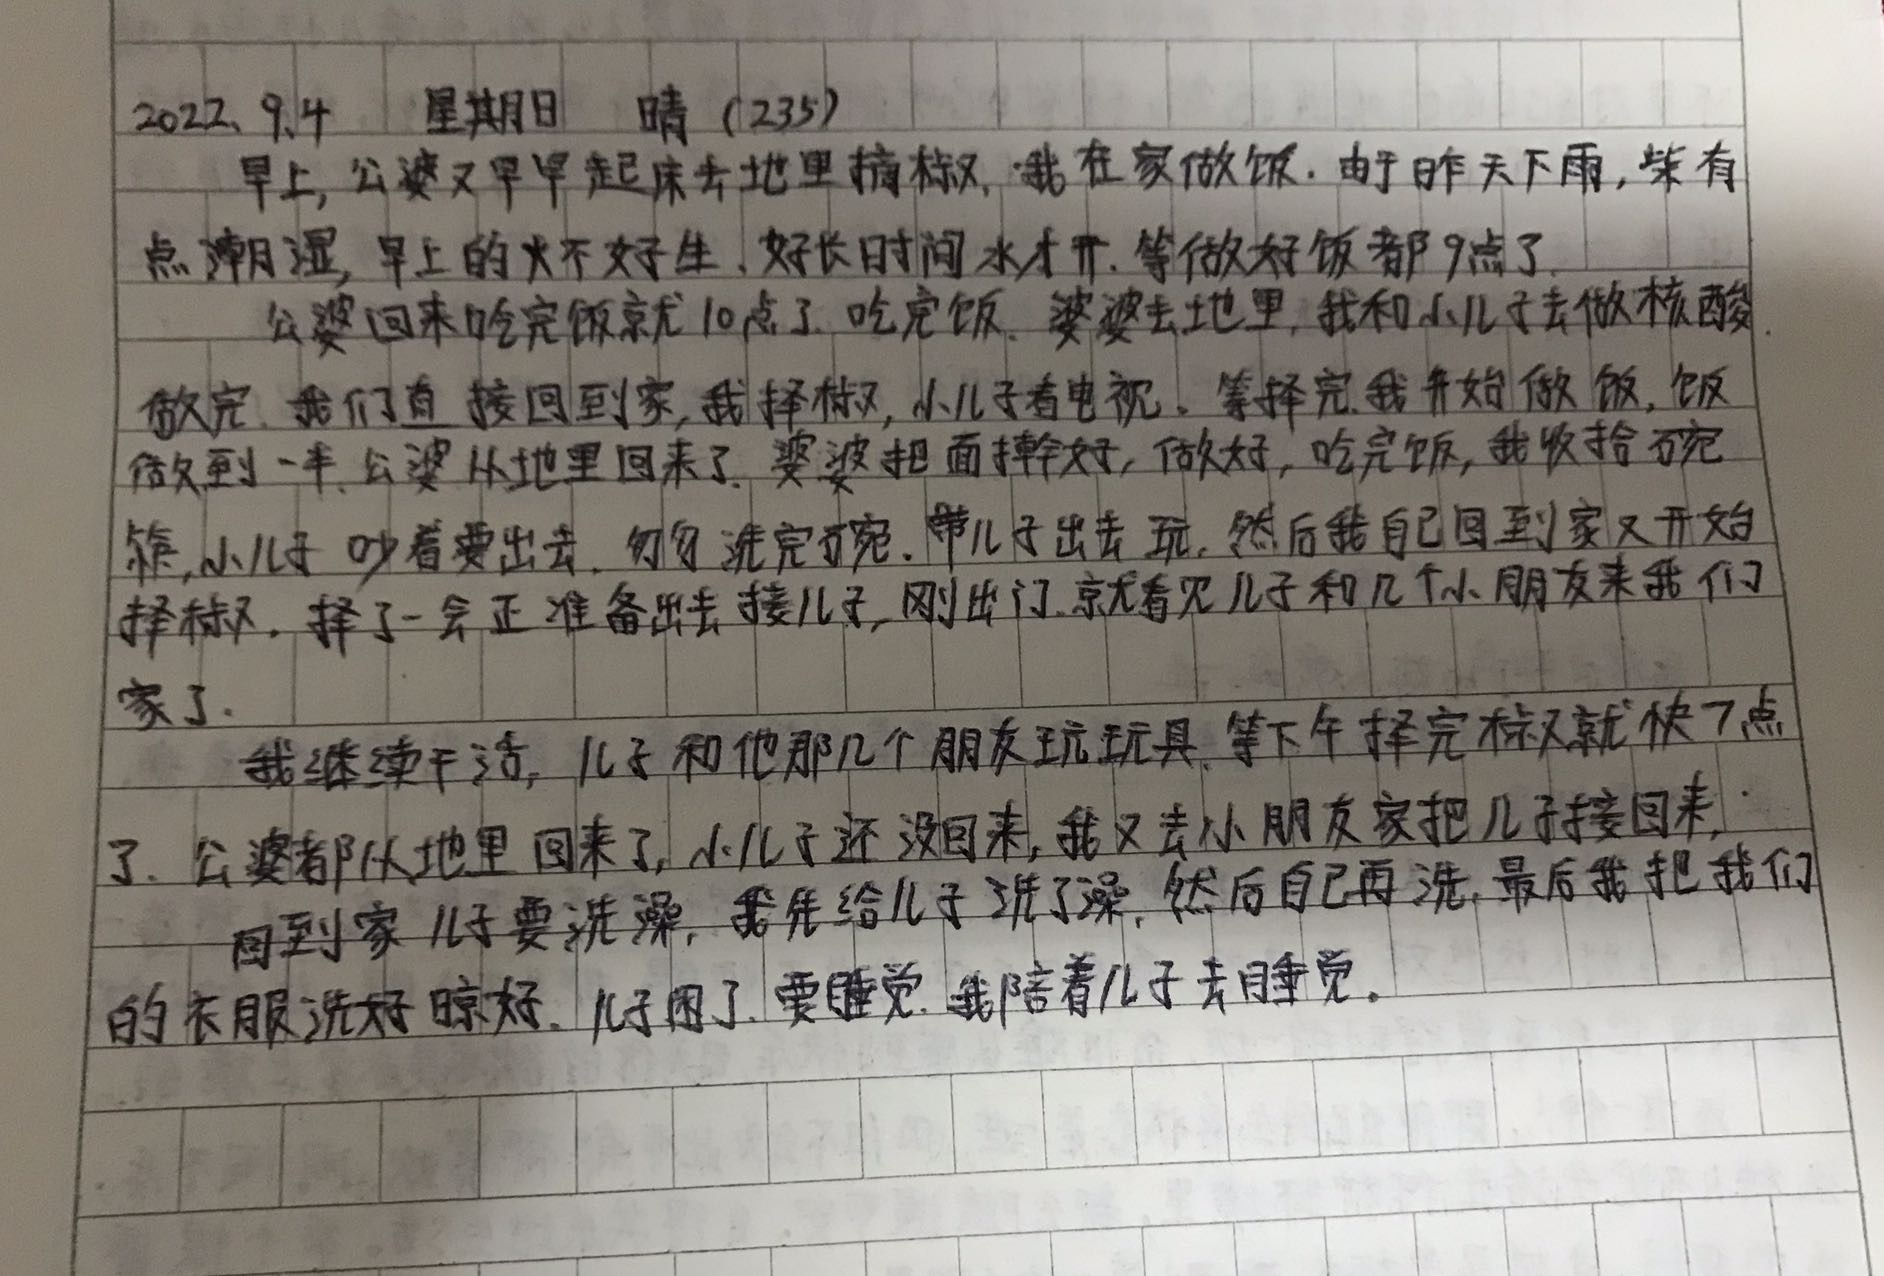 2022、9、4 星期日 晴（235）
早上，公婆又早早起床去地里摘椒，我在家做饭．由于昨天下雨，柴有
点潮湿，早上的火不好生、好长时间水才开．等做好饭都9点了．
公婆回来吃完饭就10点了．吃完饭．婆婆去地里，我和小儿子去做核酸．
做完．我们直接回到家，我择椒，小儿子看电视．等择完．我开始做饭，饭
做到一半．公婆从地里回来了．婆婆把面擀好，做好，吃完饭，我收拾碗
筷，小儿子吵着要出去．匆匆洗完碗．带儿子出去玩．然后我自己回到家又开始
择椒．择了一会正准备出去接儿子，刚出门．就看见儿子和几个小朋友来我们
家了．
我继续干活，儿子和他那几个朋友玩玩具．等下午择完椒就快7点
了．公婆都从地里回来了，小儿子还没回来，我又去小朋友家把儿子接回来，
回到家儿子要洗澡，我先给儿子洗了澡，然后自己再洗．最后我把我们
的衣服洗好晾好．儿子困了．要睡觉．我陪着儿子去睡觉。